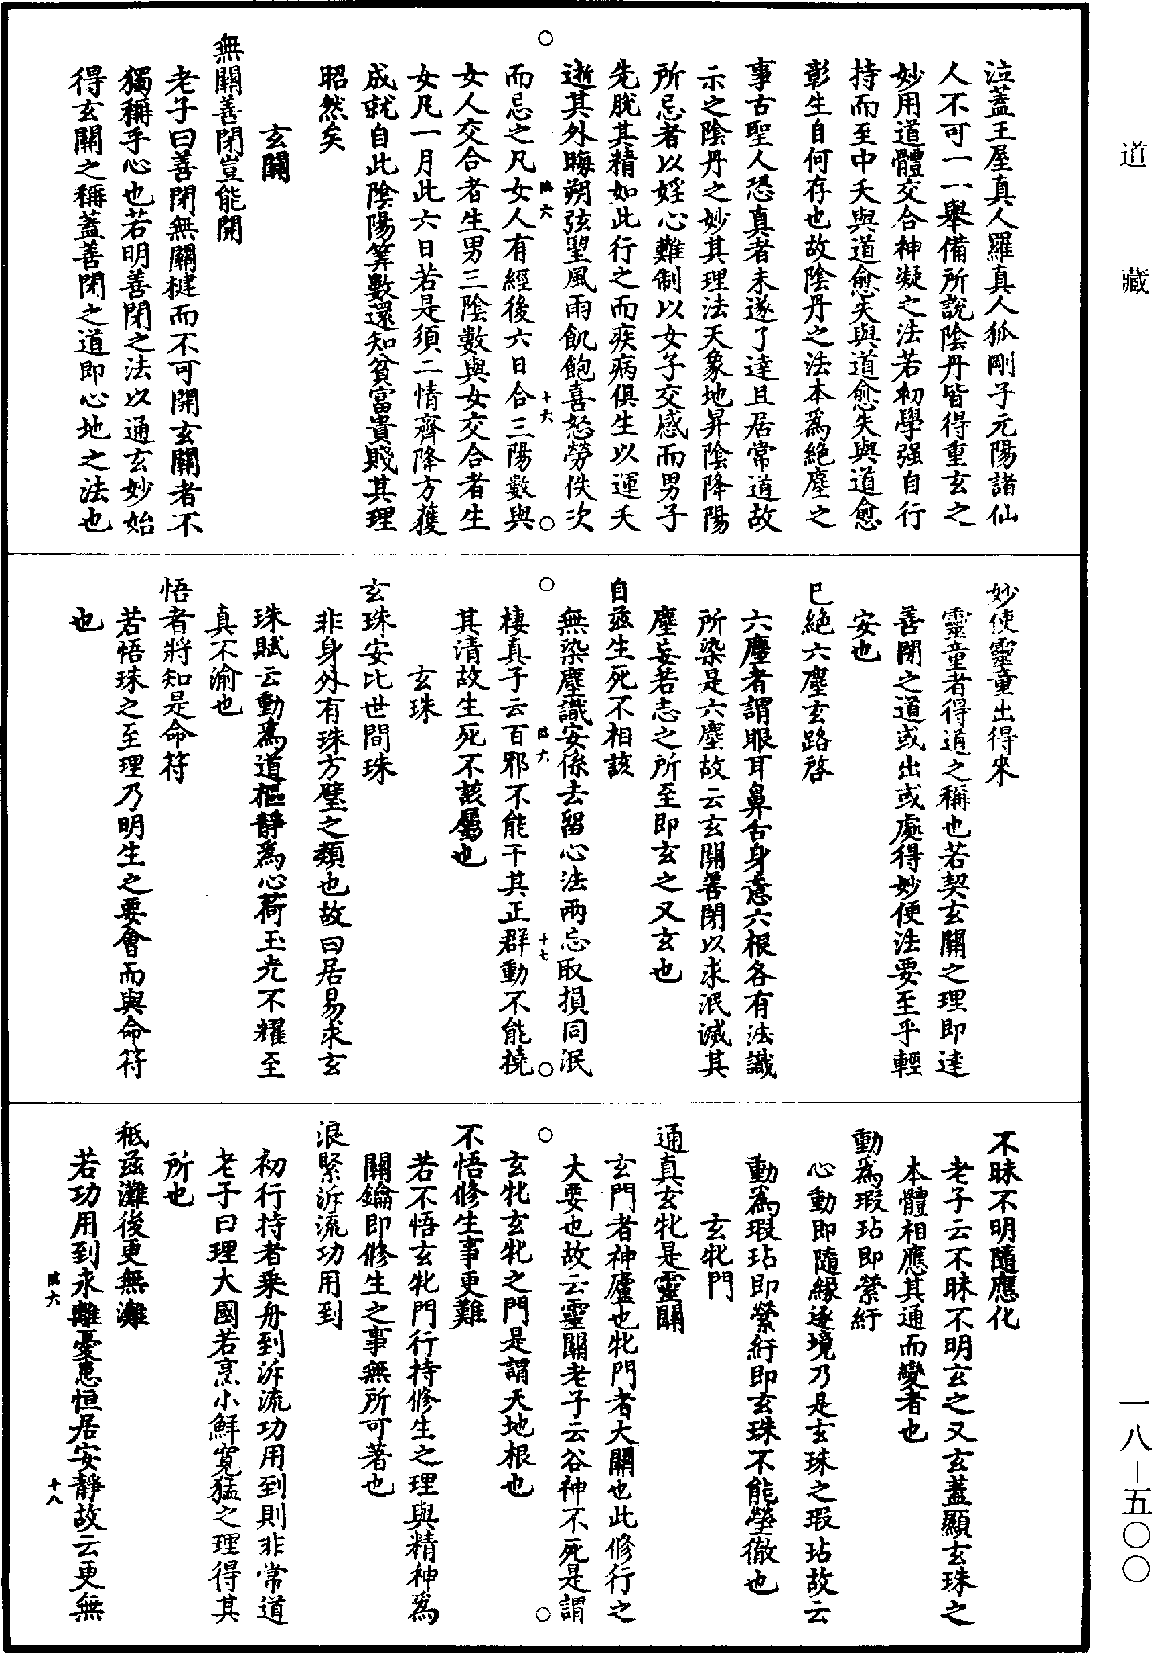 道藏
一八—五〇〇
泣蓋王屋真人羅真人狐剛子元陽諸仙
人不可一一舉備所說陰丹皆得重玄之
妙用道體交合神凝之法若初學强自行
持而至中夭與道愈矣與道愈失與道愈
彰生自何存也故陰丹之法本為絕塵之
事古聖人恐真者未遂了達且居常道故
示之陰丹之妙其理法天象地昇陰降陽
所忌者以婬心難制以女子交感而男子
先脫其精如此行之而疾病俱生以運夭
逝其外晦朔弦望風雨飢飽喜怒勞佚次
臨六 十六
而忌之凡女人有經後六日合三陽數與
女人交合者生男三陰數與女交合者生
女凡一月此六日若是須二情齊降方獲
成就自此陰陽算數還知貧富貴賤其理
昭然矣
玄關
無關善閉豈能開
老子曰善閉無關楗而不可開玄關者不
獨稱乎心也若明善閉之法以通玄妙始
得玄關之稱蓋善閉之道即心地之法也
妙使靈童出得來
靈童者得道之稱也若契玄關之理即達
善閉之道或出或處得妙便法要至乎輕
安也
已絕六塵玄路啓
六塵者謂眼耳鼻舌身意六根各有法識
所染是六塵故云玄關善閉以求泯滅其
塵妄若志之所至即玄之又玄也
自茲生死不相該
無染塵識安係去留心法兩忘取損同泯
臨六 十七
棲真子云百邪不能干其正群動不能撓
其清故生死不該屬也
玄珠
玄珠安比世間珠
非身外有珠方璧之類也故曰居易求玄
珠賦云動為道樞靜為心荷玉光不耀至
真不渝也
悟者將知是命符
若悟珠之至理乃明生之要會而與命符
也
不昧不明隨應化
老子云不昧不明玄之又玄蓋顯玄珠之
本體相應其通而變者也
動為瑕玷即縈紆
心動即隨緣逐境乃是玄珠之瑕玷故云
動為瑕玷即縈紆即玄珠不能瑩徹也
玄牝門
通真玄牝是靈關
玄門者神廬也牝門者大關也此修行之
大要也故云靈關老子云谷神不死是謂
玄牝玄牝之門是謂天地根也
不悟修生事更難
若不悟玄牝門行持修生之理與精神為
關鑰即修生之事無所可著也
浪緊泝流功用到
初行持者乘舟到泝流功用到則非常道
老子曰理大國若烹小鮮寬猛之理得其
所也
秪茲灘後更無灘
若功用到永離憂患恒居安靜故云更無
臨六 十八